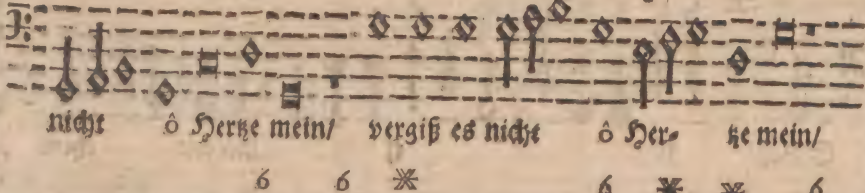 nicht ô Hertze mein/ vergiß es nicht ô Her- tze mein/
6 6 ※ 6 ※ ※ 6